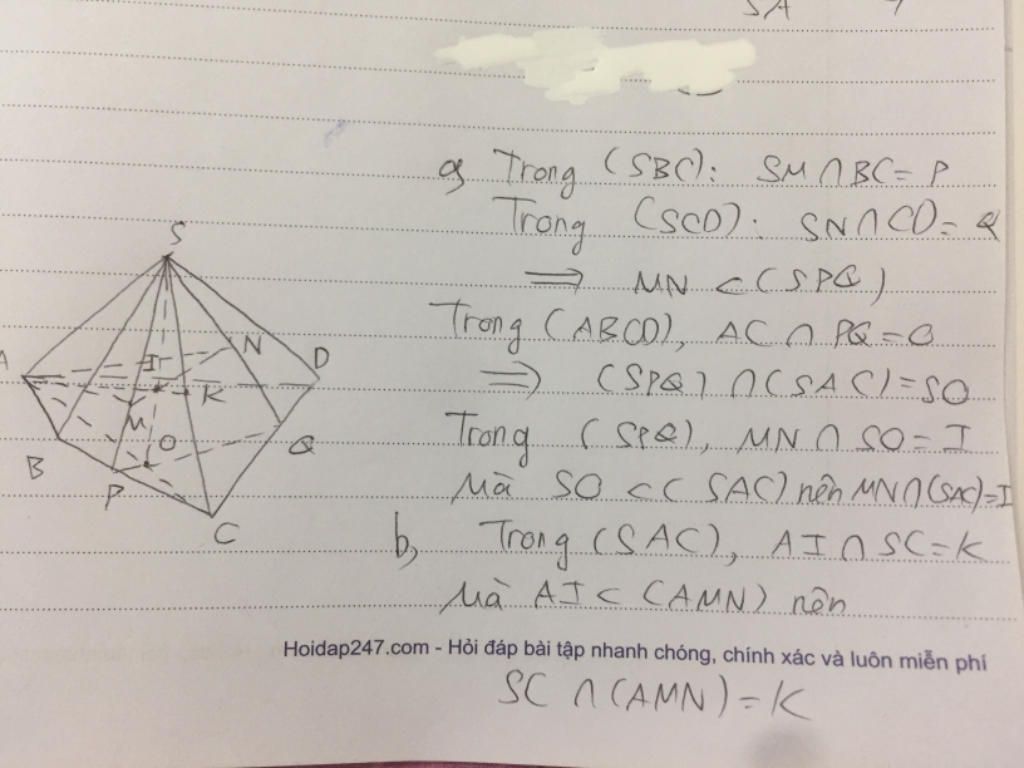 SA
a, Trong (SBC): SM ∩ BC = P
Trong (SCD): SN ∩ CD = Q
⇒ MN ⊂ (SPQ)
Trong (ABCD), AC ∩ PQ = O
⇒ (SPQ) ∩ (SAC) = SO
Trong (SPQ), MN ∩ SO = I
Mà SO ⊂ (SAC) nên MN ∩ (SAC) = I
b, Trong (SAC), AI ∩ SC = K
Mà AI ⊂ (AMN) nên
Hoidap247.com - Hỏi đáp bài tập nhanh chóng, chính xác và luôn miễn phí
SC ∩ (AMN) = K
S
A
I
N
D
K
M
O
Q
B
P
C